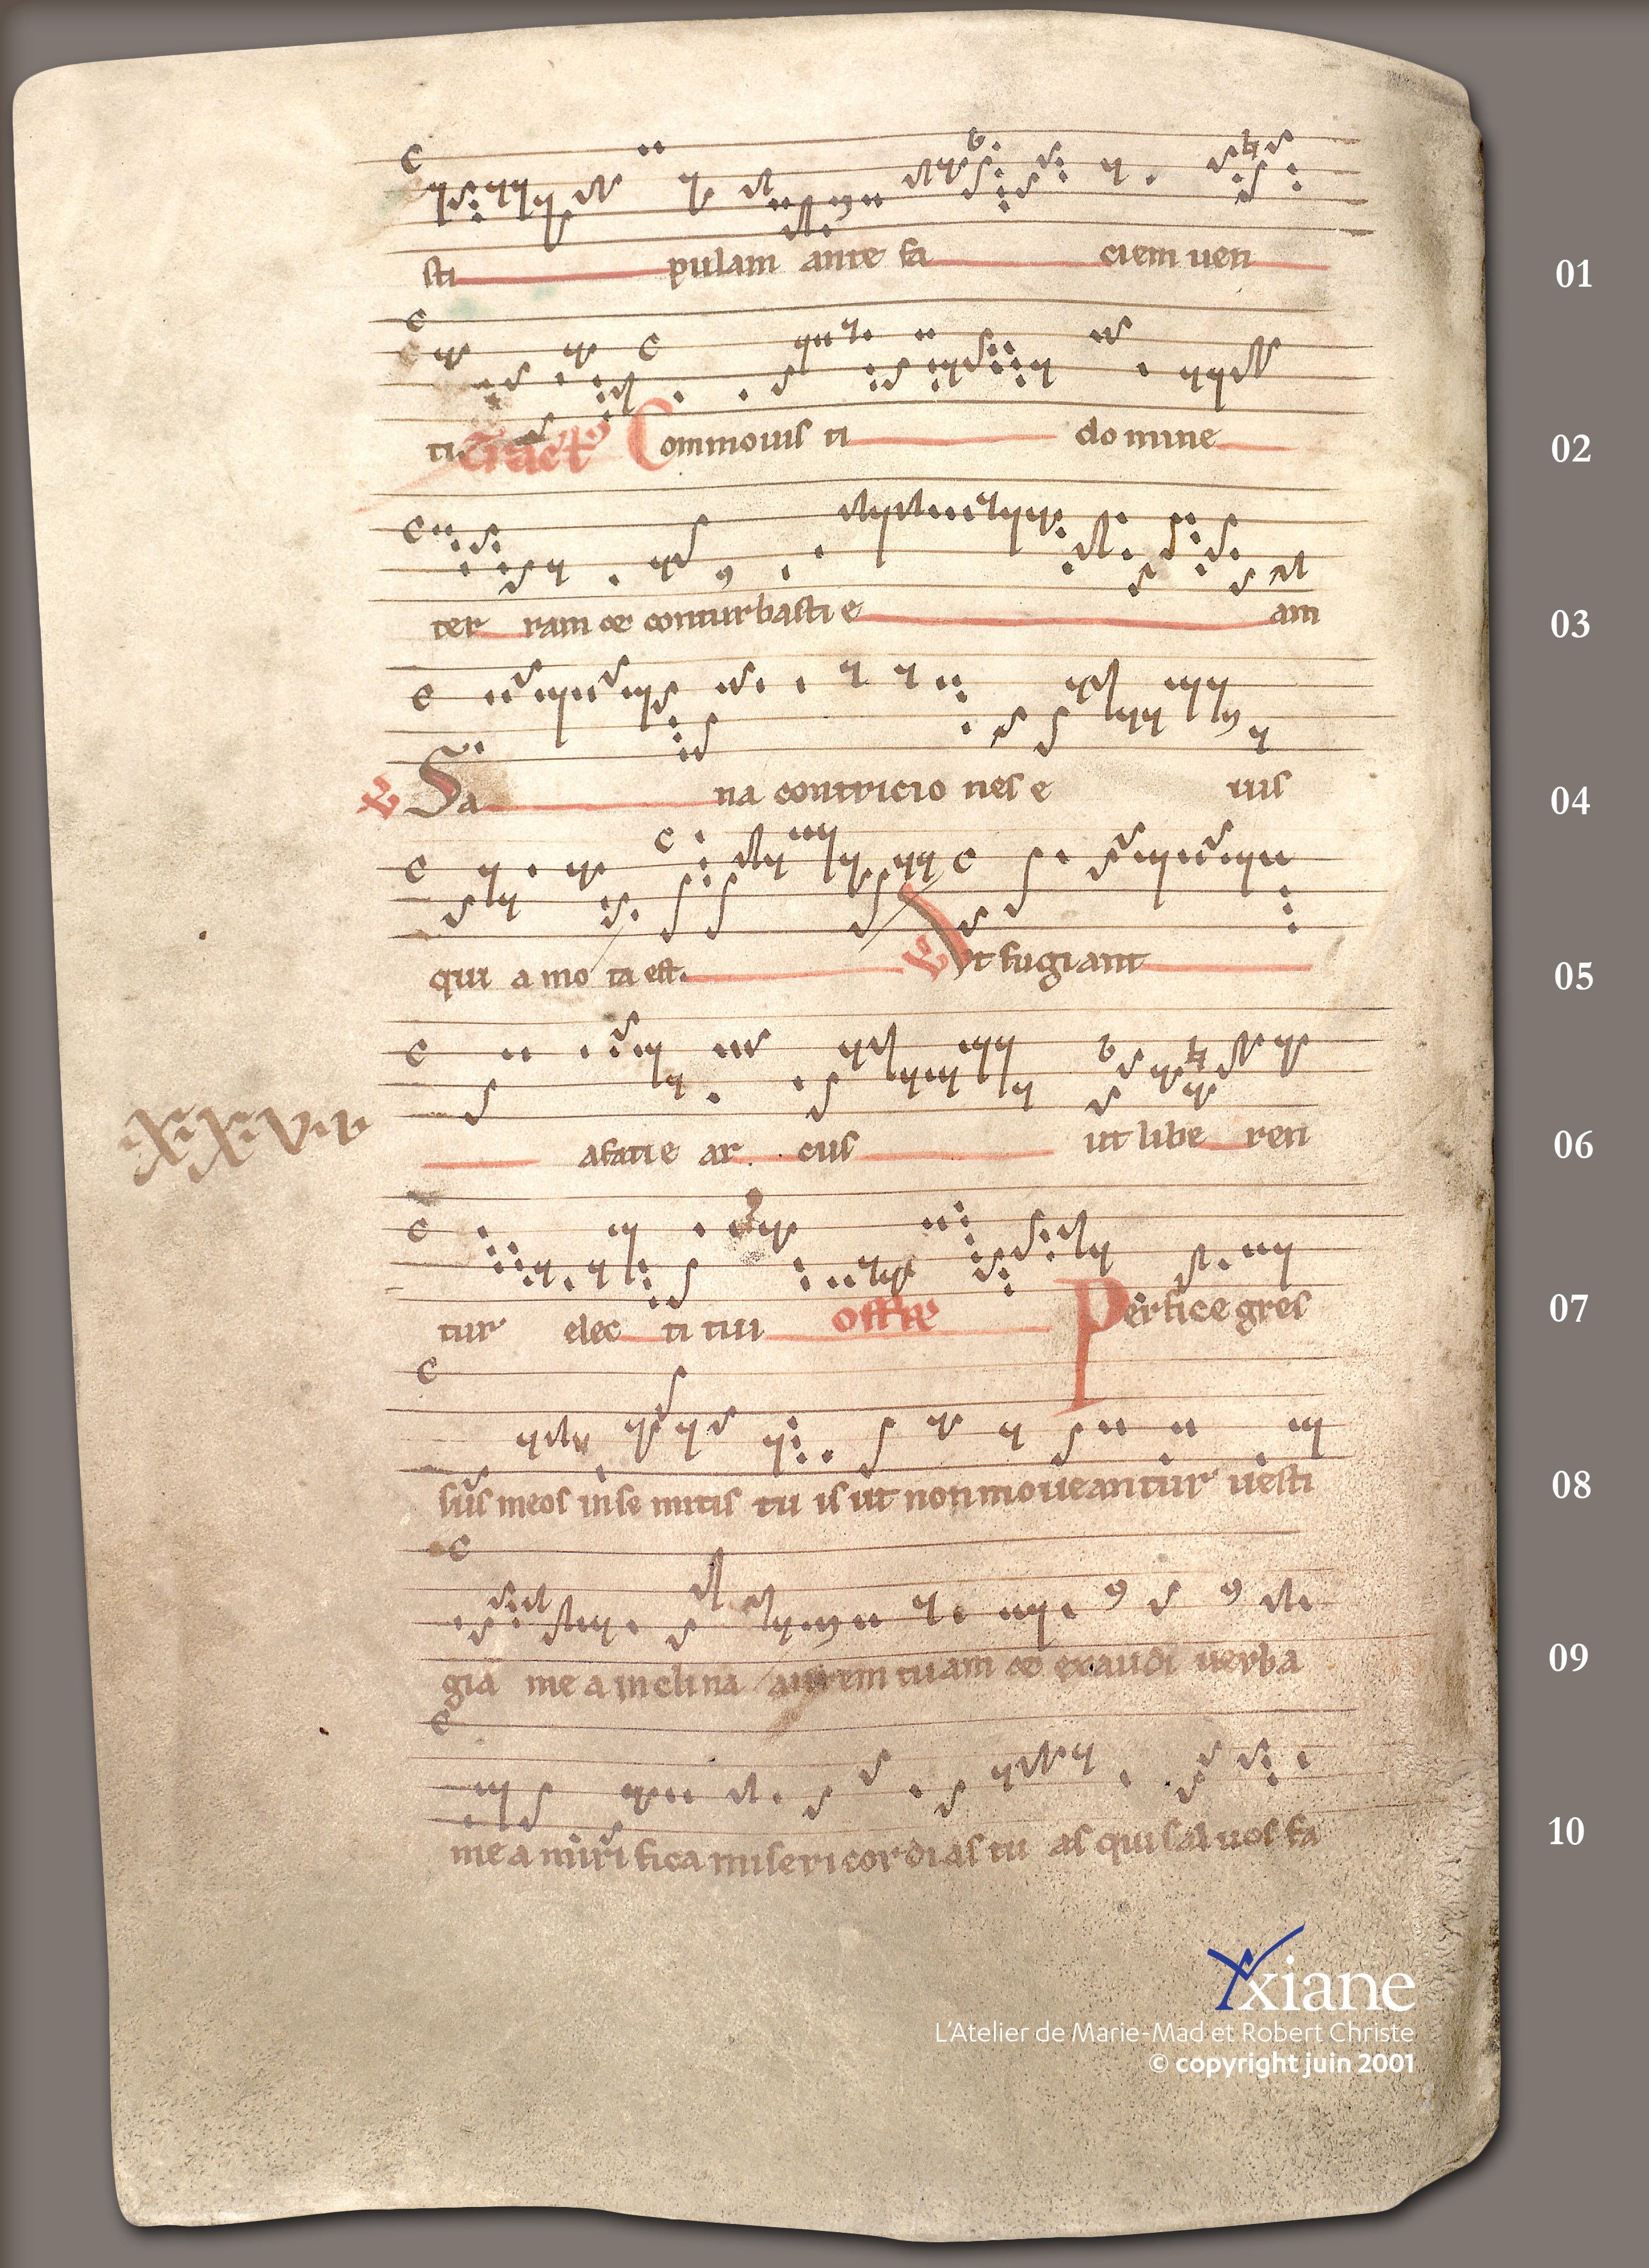 sti pulam ante fa ciem uen 01
ti. Tract Commouis ti domine 02
ter ram et conturbasti e am 03
Sa na contricio nes e ius 04
qui a mo ta est. Ut fugiant 05
.X.X.V.IV.
afatie ar cus ut libe ren 06
tur elec ti tui Offr Perfice gres 07
sus meos inse mitis tu is ut non moueantur uesti 08
gia me a inclina aurem tuam et exaudi uerba 09
mea miri fica misericordias tu as qui saluos fa 10
Yxiane
L'Atelier de Marie-Mad et Robert Christe
© copyright juin 2001